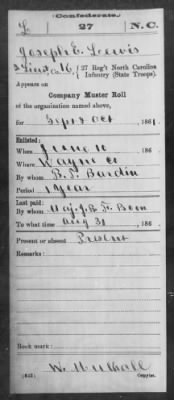 Confederate.
L 27 N.C.
Joseph E. Lewis
Co. 16, 27 Reg't North Carolina
Infantry (State Troops).
Appears on
Company Muster Roll
of the organization named above,
for Sept & Oct, 1861.
Enlisted:
When June 10, 186
Where Wayne Co
By whom B. F. Bardin
Period 1 year
Last paid:
By whom Maj. J. B. F. Boon
To what time Aug 31, 186
Present or absent Present
Remarks:
Book mark:
(642) Copyist.